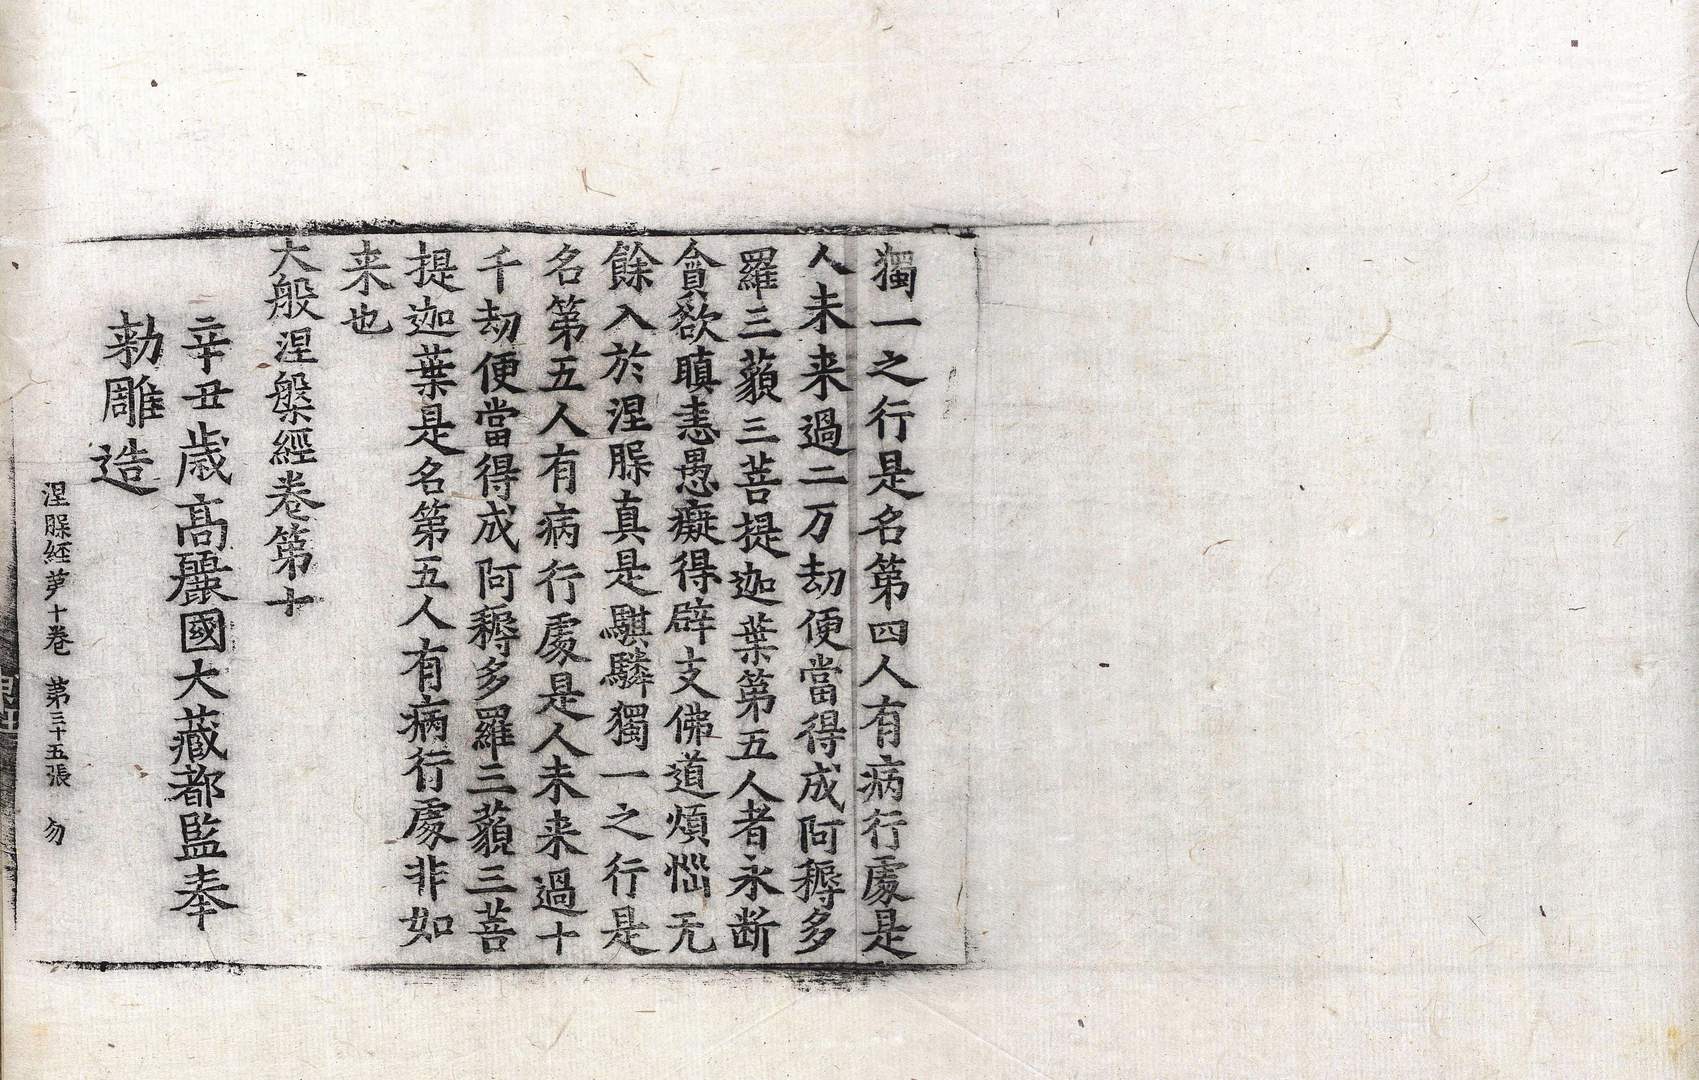 獨一之行是名第四人有病行處是
人未来過二万劫便當得成阿耨多
羅三藐三菩提迦葉第五人者永断
貪欲瞋恚愚癡得辟支佛道煩惱无
餘入於涅槃真是騏驎獨一之行是
名第五人有病行處是人未来過十
千劫便當得成阿耨多羅三藐三菩
提迦葉是名第五人有病行處非如
来也
大般涅槃經卷第十
辛丑歳高麗國大藏都監奉
勅雕造
涅槃経第十卷 第三十五張 勿